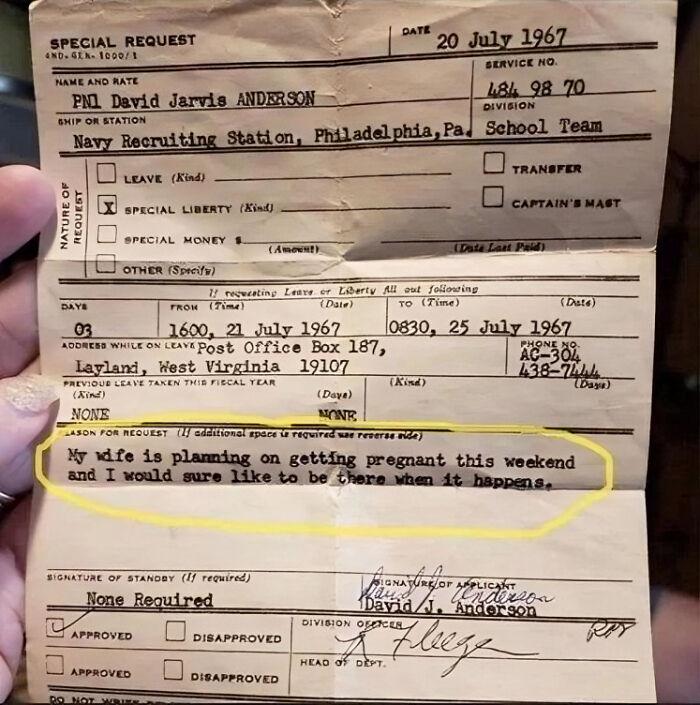 SPECIAL REQUEST
DATE 20 July 1967
NAME AND RATE
SERVICE NO.
PN1 David Jarvis ANDERSON
484 98 70
SHIP OR STATION
DIVISION
Navy Recruiting Station, Philadelphia, Pa. School Team
NATURE OF REQUEST
LEAVE (Kind)
TRANSFER
X SPECIAL LIBERTY (Kind)
CAPTAIN'S MAST
SPECIAL MONEY $
(Amount) (Date Last Paid)
OTHER (Specify)
If requesting Leave or Liberty fill out following
DAYS FROM (Time) (Date) TO (Time) (Date)
03 1600, 21 July 1967 0830, 25 July 1967
ADDRESS WHILE ON LEAVE Post Office Box 187,
PHONE NO.
Layland, West Virginia 19107
AC-304
438-7444
PREVIOUS LEAVE TAKEN THIS FISCAL YEAR
(Kind) (Days) (Kind) (Days)
NONE NONE
REASON FOR REQUEST (If additional space is required use reverse side)
My wife is planning on getting pregnant this weekend
and I would sure like to be there when it happens.
SIGNATURE OF STANDBY (If required)
SIGNATURE OF APPLICANT
David J. Anderson
None Required
David J. Anderson
APPROVED DISAPPROVED
DIVISION OFFICER
APPROVED DISAPPROVED
HEAD OF DEPT.
DO NOT WRITE